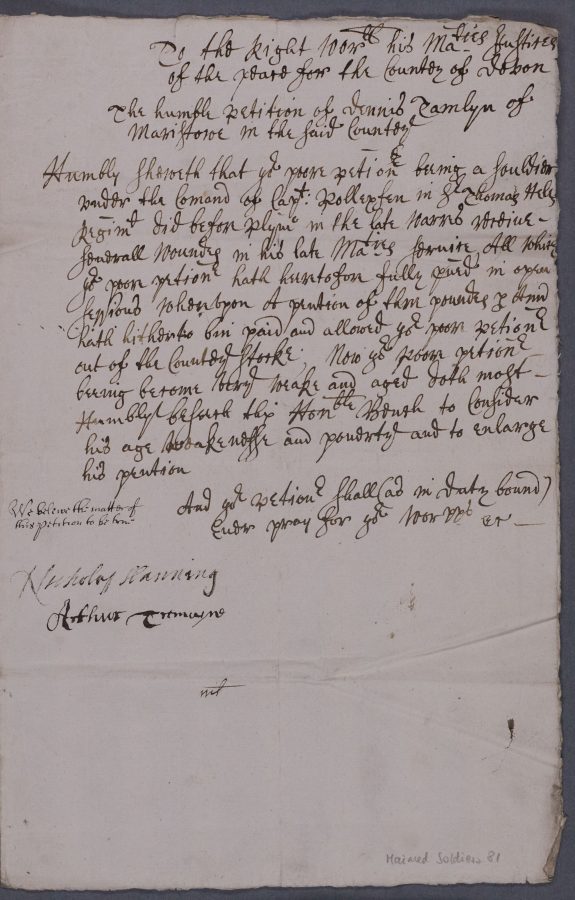 To the Right Wor:ll his Ma:ties Justices
of the peace for the Countey of Devon
The humble petition of Dennis Tamlyn of
Maristowe in the said Countey
Humbly sheweth that yor poore petionr being a souldier
vnder the Comand of Capt: Pollexfen in Sr Thomas Hele
Regimt did before Plymo in the late Warres receive
severall Woundes in his late Maties service, All which
yor poore petionr hath heretofore fully pued in open
sessions Wherevpon A pention of three poundes p Annu
hath hitherto bin paid and allowed yor poore petionr
out of the Countey Stocke. Now yor poore petionr
being become very weake and aged doth most
Humbly beseech this Honble Bench to Consider
his age Weakenesse and poverty and to enlarge
his pention
And yor petionr shall (as in duty bound)
Ever pray for yor Worpps etc
We beleive the matter of
this petition to be true
Nicholas Slanning
Arthur Tremayne
nil
Maimed Soldiers 81